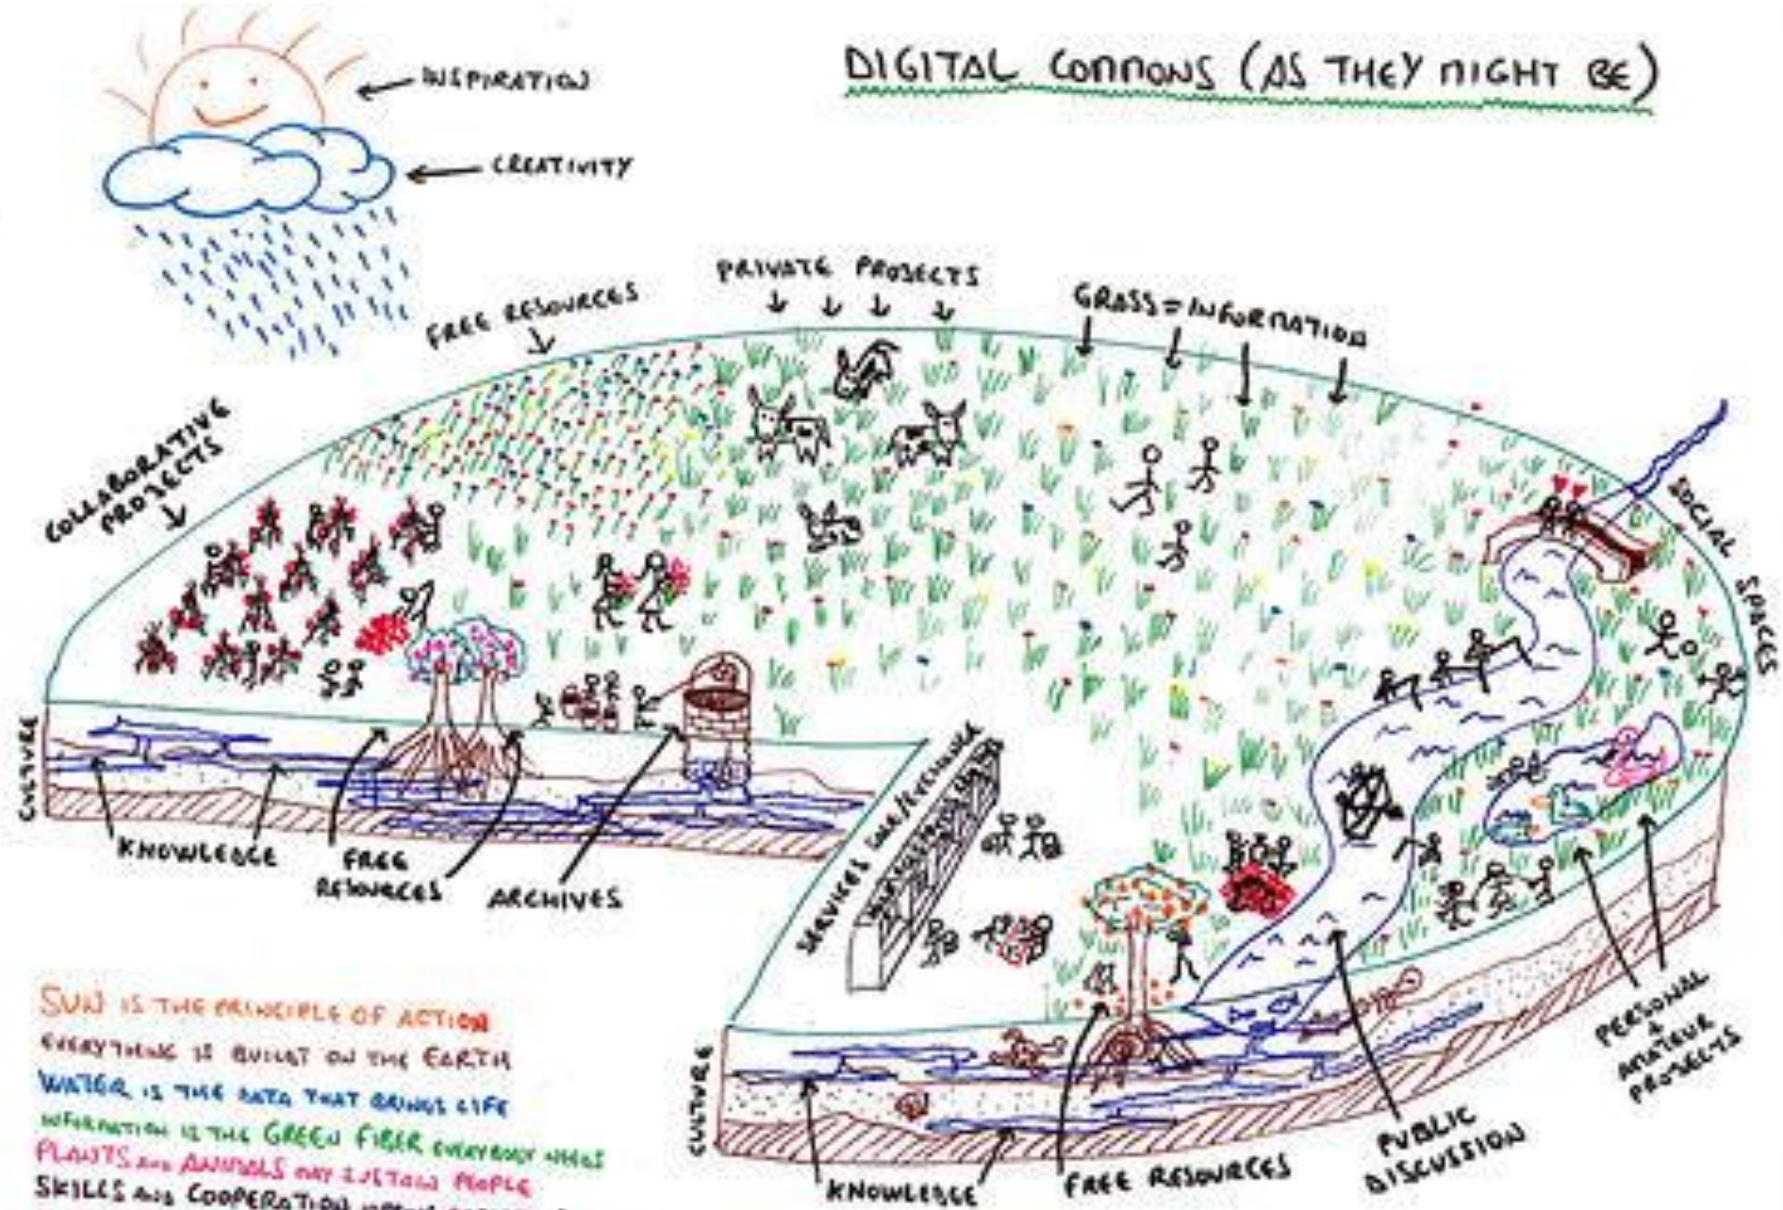 DIGITAL COMMONS (AS THEY MIGHT BE)
INSPIRATION
CREATIVITY
PRIVATE PROJECTS
FREE RESOURCES
GRASS = INFORMATION
COLLABORATIVE
PROJECTS
SOCIAL SPACES
CULTURE
KNOWLEDGE
FREE
RESOURCES
ARCHIVES
SERVICES
CULTURE
KNOWLEDGE
FREE RESOURCES
PUBLIC
DISCUSSION
PERSONAL
+
AMATEUR
PROJECTS
SUN IS THE PRINCIPLE OF ACTION
EVERYTHING IS BUILT ON THE EARTH
WATER IS THE DATA THAT BRINGS LIFE
INFORMATION IS THE GREEN FIBER EVERYBODY NEEDS
PLANTS AND ANIMALS MAY SUSTAIN PEOPLE
SKILLS AND COOPERATION